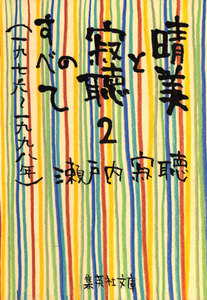 晴美
と
寂聴
の
すべて
2
(一九七六〜一九九八年)
瀬戸内寂聴
集英社文庫